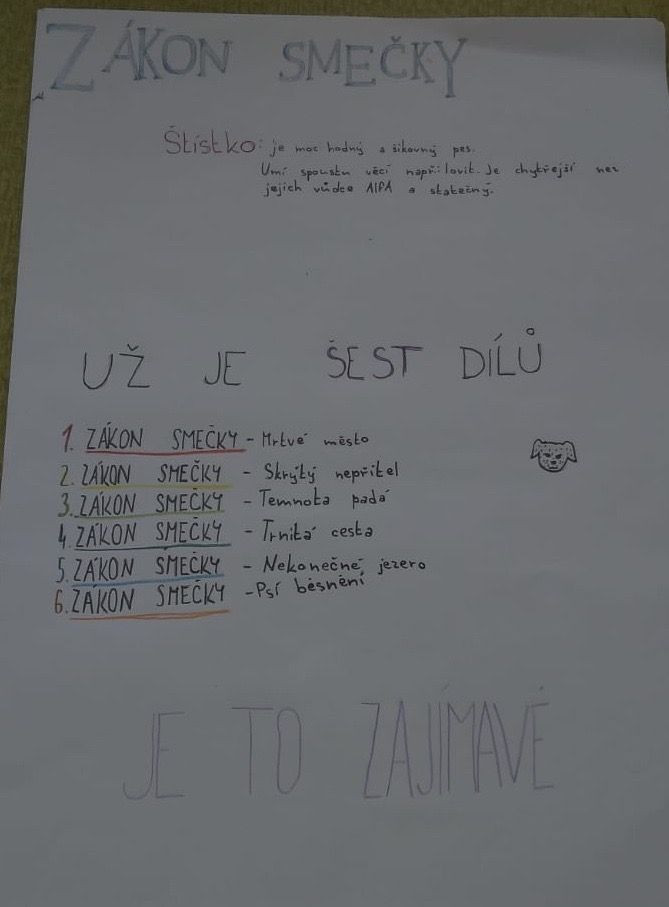 ZÁKON SMEČKY
Štístko: je moc hodný a šikovný pes.
Umí spoustu věcí např: lovit. Je chytřejší než
jejich vůdce AlFA a statečný.
UŽ JE ŠEST DÍLŮ
1. ZÁKON SMEČKY - Mrtvé město
2. ZÁKON SMEČKY - Skrytý nepřítel
3. ZÁKON SMEČKY - Temnota padá
4. ZÁKON SMEČKY - Trnitá cesta
5. ZÁKON SMEČKY - Nekonečné jezero
6. ZÁKON SMEČKY - Psí běsnění
JE TO ZAJÍMAVÉ